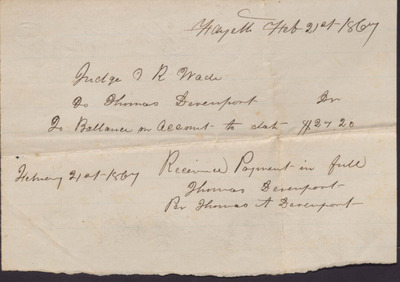 Fayette Feb 21st 1867
Judge I R Wade
To Thomas Devenport Dr
To Ballance on Account to date $27.20
Received Payment in full
Febuary 21st 1867
Thomas Devenport
Per Thomas A Devenport